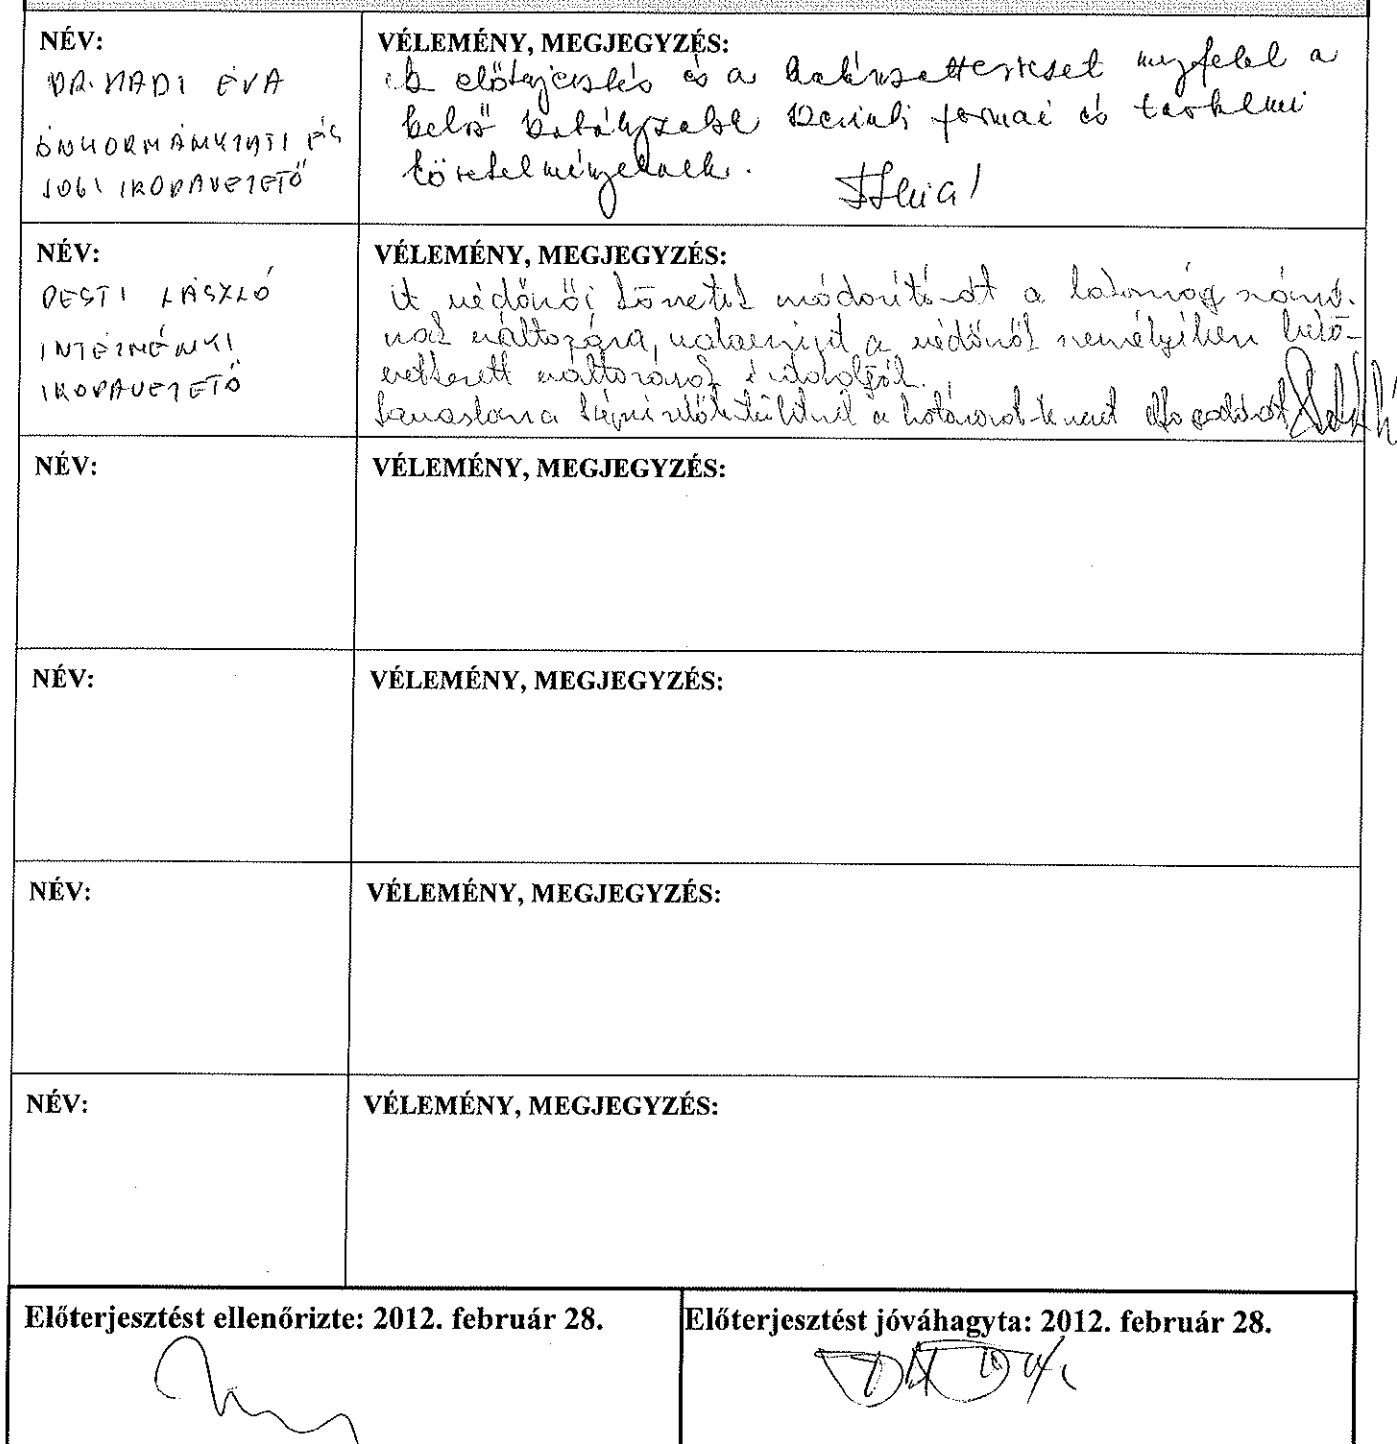 NÉV:
DR. NÁDI ÉVA
ÖNKORMÁNYZATI ÉS
JOGI IRODAVEZETŐ
VÉLEMÉNY, MEGJEGYZÉS:
Az előterjesztés és a határozattervezet megfelel a
belső szabályzat szerinti formai és tartalmi
követelményeknek.
NÉV:
PESTI LÁSZLÓ
INTÉZMÉNYI
IRODAVEZETŐ
VÉLEMÉNY, MEGJEGYZÉS:
A védőnői körzetek módosítását a lakosság számá-
nak változása, valamint a védőnők személyében bekö-
vetkezett változások indokolják.
Javaslom a képviselőtestületnek a határozat-tervezet elfogadását
NÉV:
VÉLEMÉNY, MEGJEGYZÉS:
NÉV:
VÉLEMÉNY, MEGJEGYZÉS:
NÉV:
VÉLEMÉNY, MEGJEGYZÉS:
NÉV:
VÉLEMÉNY, MEGJEGYZÉS:
Előterjesztést ellenőrizte: 2012. február 28.
Előterjesztést jóváhagyta: 2012. február 28.